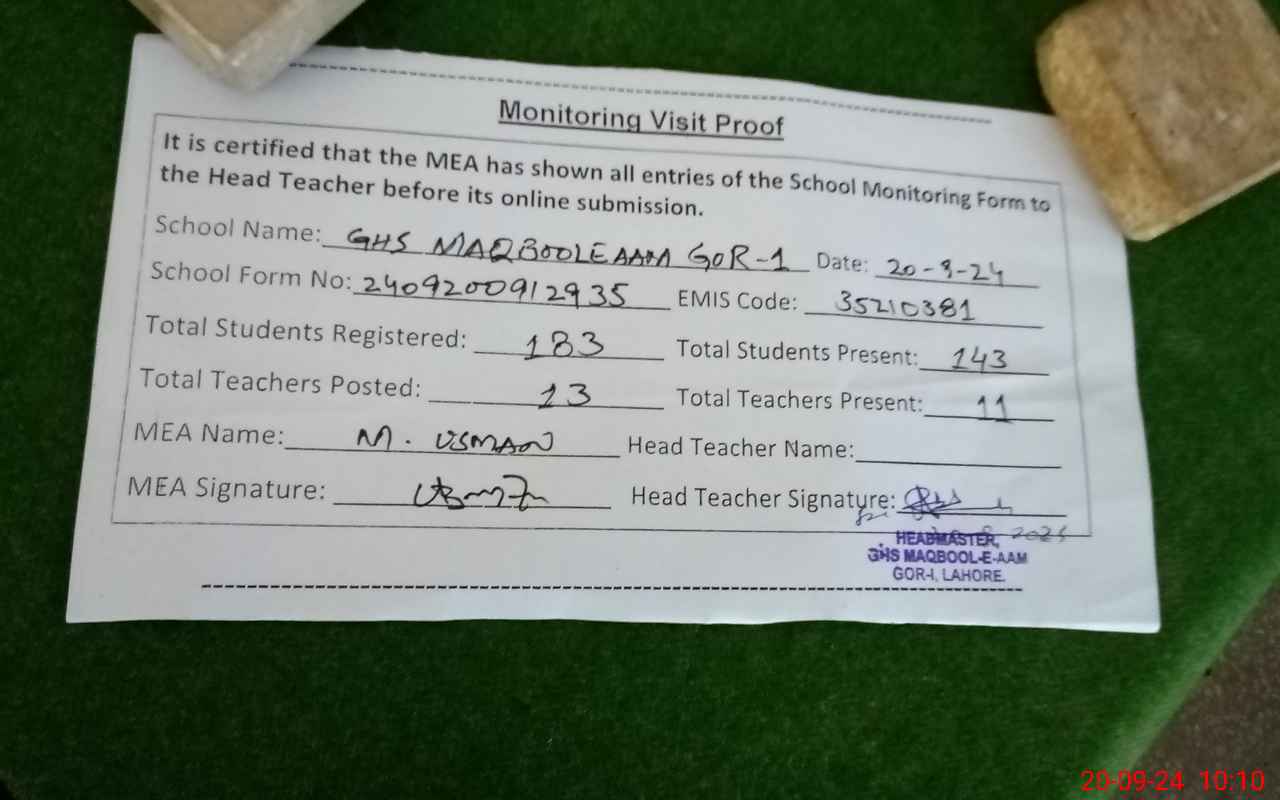 Monitoring Visit Proof
It is certified that the MEA has shown all entries of the School Monitoring Form to
the Head Teacher before its online submission.
School Name: GHS MAQBOOLEAAM GOR-1 Date: 20-9-24
School Form No: 2409200912935 EMIS Code: 35210381
Total Students Registered: 183 Total Students Present: 143
Total Teachers Posted: 13 Total Teachers Present: 11
MEA Name: M. USMAN Head Teacher Name:
MEA Signature: Head Teacher Signature:
HEADMASTER,
GHS MAQBOOL-E-AAM
GOR-I, LAHORE.
20-09-24 10:10